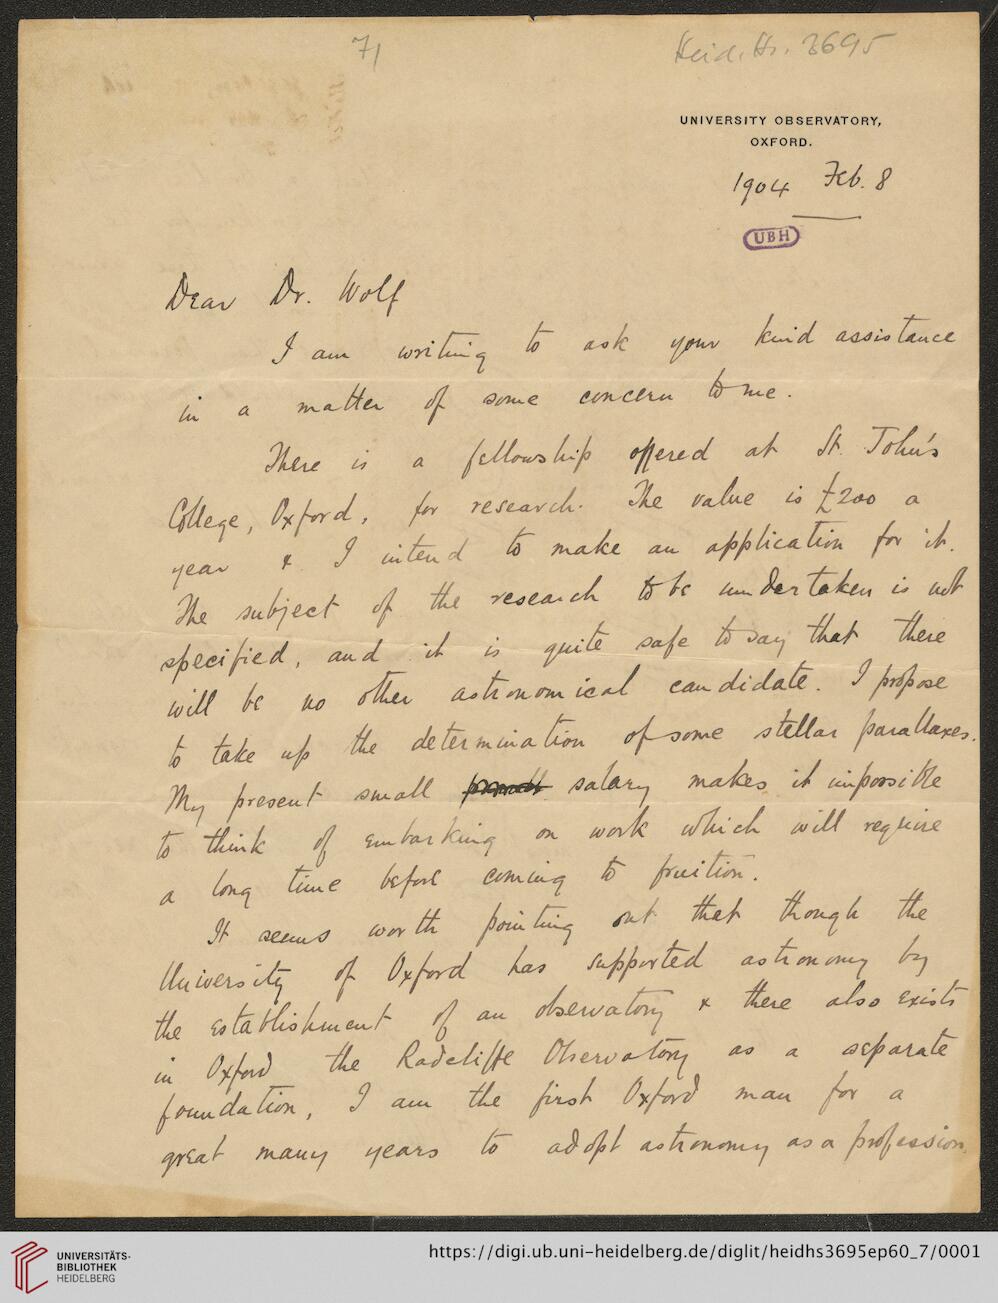 71
Heid. Hs. 3695
UNIVERSITY OBSERVATORY,
OXFORD.
1904 Feb. 8
UBH
Dear Dr. Wolf
I am writing to ask your kind assistance
in a matter of some concern to me.
There is a fellowship offered at St. John's
College, Oxford, for research. The value is £200 a
year & I intend to make an application for it.
The subject of the research to be undertaken is not
specified, and it is quite safe to say that there
will be no other astronomical candidate. I propose
to take up the determination of some stellar parallaxes.
My present small salary makes it impossible
to think of embarking on work which will require
a long time before coming to fruition.
It seems worth pointing out that though the
University of Oxford has supported astronomy by
the establishment of an observatory & there also exists
in Oxford the Radcliffe Observatory as a separate
foundation, I am the first Oxford man for a
great many years to adopt astronomy as a profession.
UNIVERSITÄTS-
BIBLIOTHEK
HEIDELBERG
https://digi.ub.uni-heidelberg.de/diglit/heidhs3695ep60_7/0001